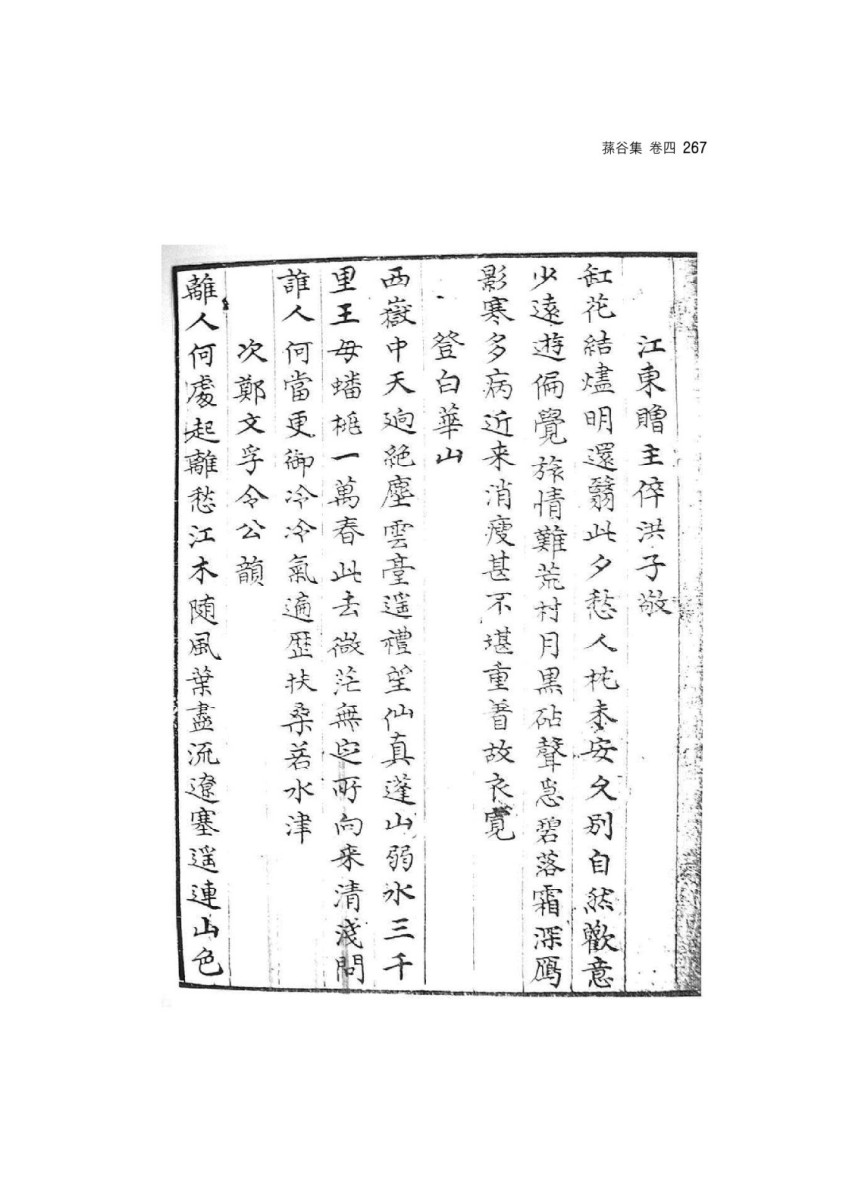 蓀谷集 卷四 267
江東贈主倅洪子敬
缸花結燼明還翳此夕愁人抌未安久別自然歡意
少遠遊偏覺旅情難荒村月黑砧聲急碧落霜深鴈
影寒多病近来消瘦甚不堪重着故衣寬
登白華山
西嶽中天逈絕塵雲臺遥禮望仙真蓬山弱水三千
里王母蟠桃一萬春此去微茫無定所向来清淺問
誰人何當更御冷冷氣遍歷扶桑若水津
次鄭文孚令公韻
離人何處起離愁江木随風葉盡流遼塞遥連山色